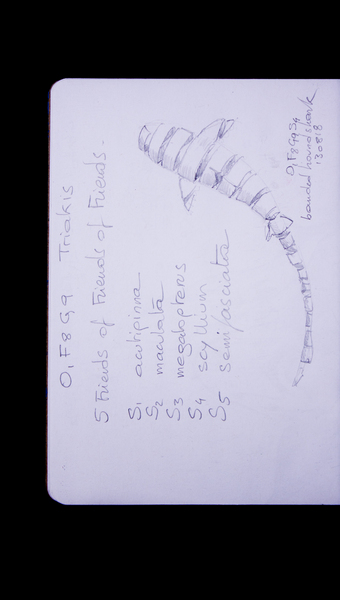 O1F8G9 Triakis
5 Friends of Friends of Friends.
S1 acutipinna
S2 maculata
S3 megalopterus
S4 scyllium
S5 semifasciata
O1F8G9S4
banded houndshark
130818